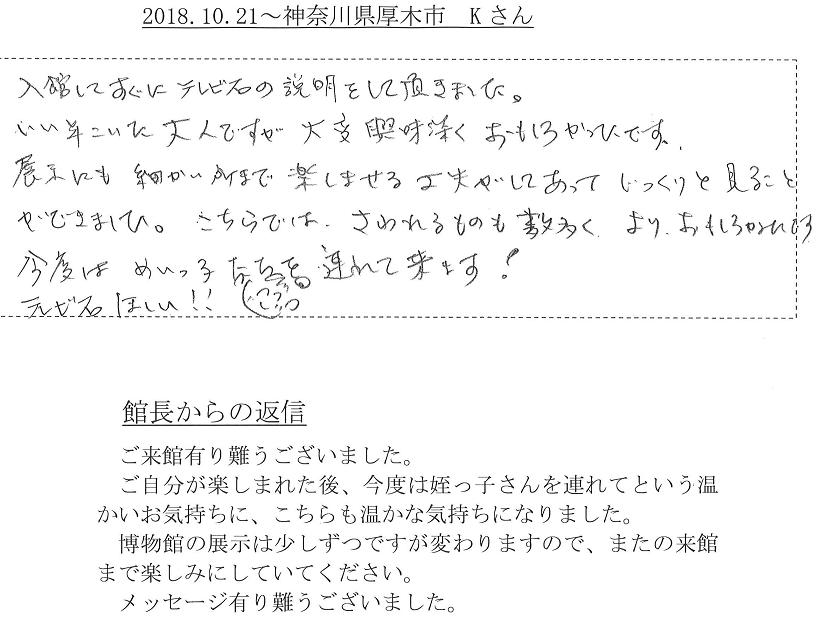 2018.10.21～神奈川県厚木市　Kさん
入館してすぐに テレビ石の説明をして頂きました。
いい年こいた大人ですが 大変興味深く おもしろかったです。
展示にも 細かい所まで 楽しませる工夫がしてあって じっくりと見ること
ができました。こちらでは、さわれるものも数多く、より、おもしろかったです
今度は めいっ子たちを 連れて来ます！
テレビ石ほしい!!
館長からの返信
ご来館有り難うございました。
ご自分が楽しまれた後、今度は姪っ子さんを連れてという温
かいお気持ちに、こちらも温かな気持ちになりました。
博物館の展示は少しずつですが変わりますので、またの来館
まで楽しみにしていてください。
メッセージ有り難うございました。